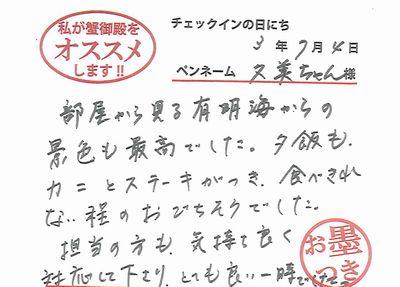 私が蟹御殿を
オススメ
します!!
チェックインの日にち
3年7月4日
ペンネーム 文美ちゃん様
部屋から見る有明海からの
景色も最高でした。夕飯も、
カニとステーキがつき、食べきれ
ない程のおごちそうでした。
担当の方も、気持ち良く
対応して下さり、とても良い一時でした。
お墨つき